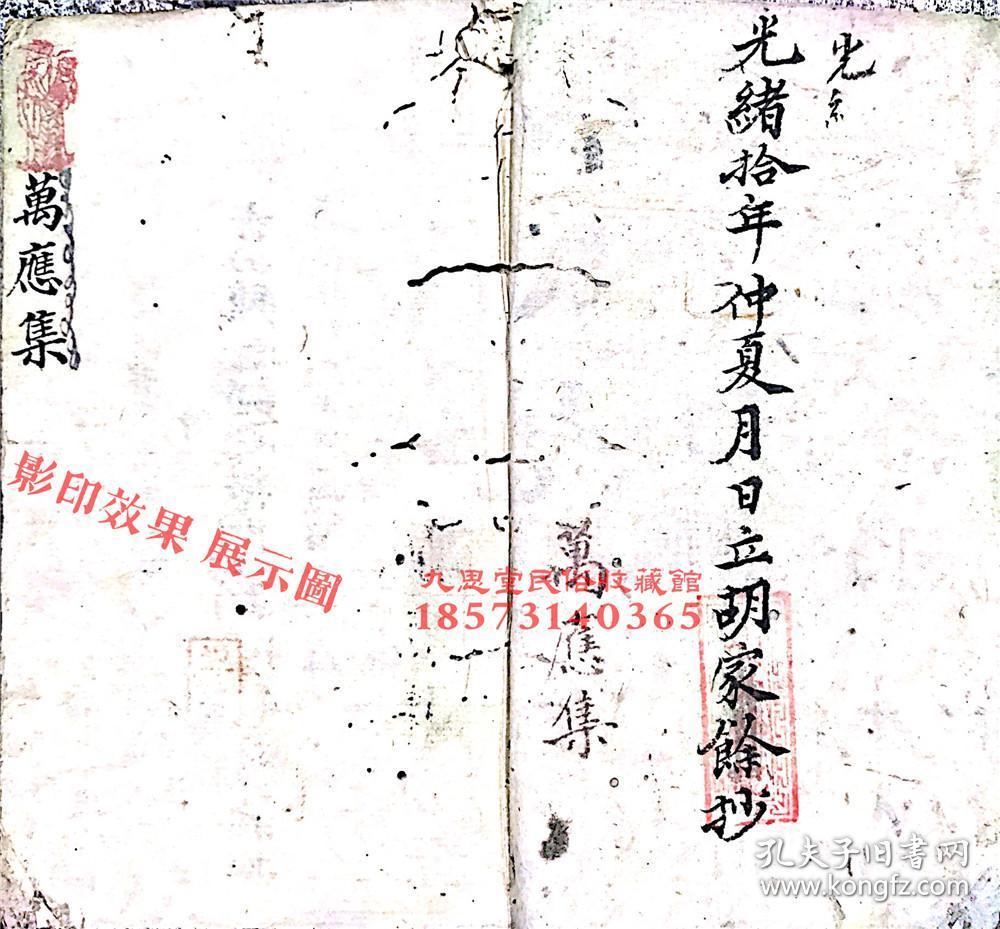 光
光緒拾年仲夏月日立胡家餘抄
萬應集
萬應集
影印效果 展示圖
九思堂民俗收藏館
18573140365
孔夫子旧书网
www.kongfz.com